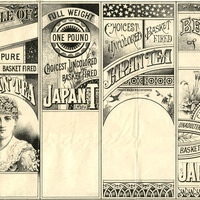 LE OF
PURE
BASKET FIRED
N·TEA
FULL WEIGHT
ONE POUND
CHOICEST UNCOLORED
BASKET FIRED
JAPAN T
CHOICEST
UNCOLORED BASKET
FIRED
JAPAN TEA
BE
of
UNADULTER
BASKET
JA